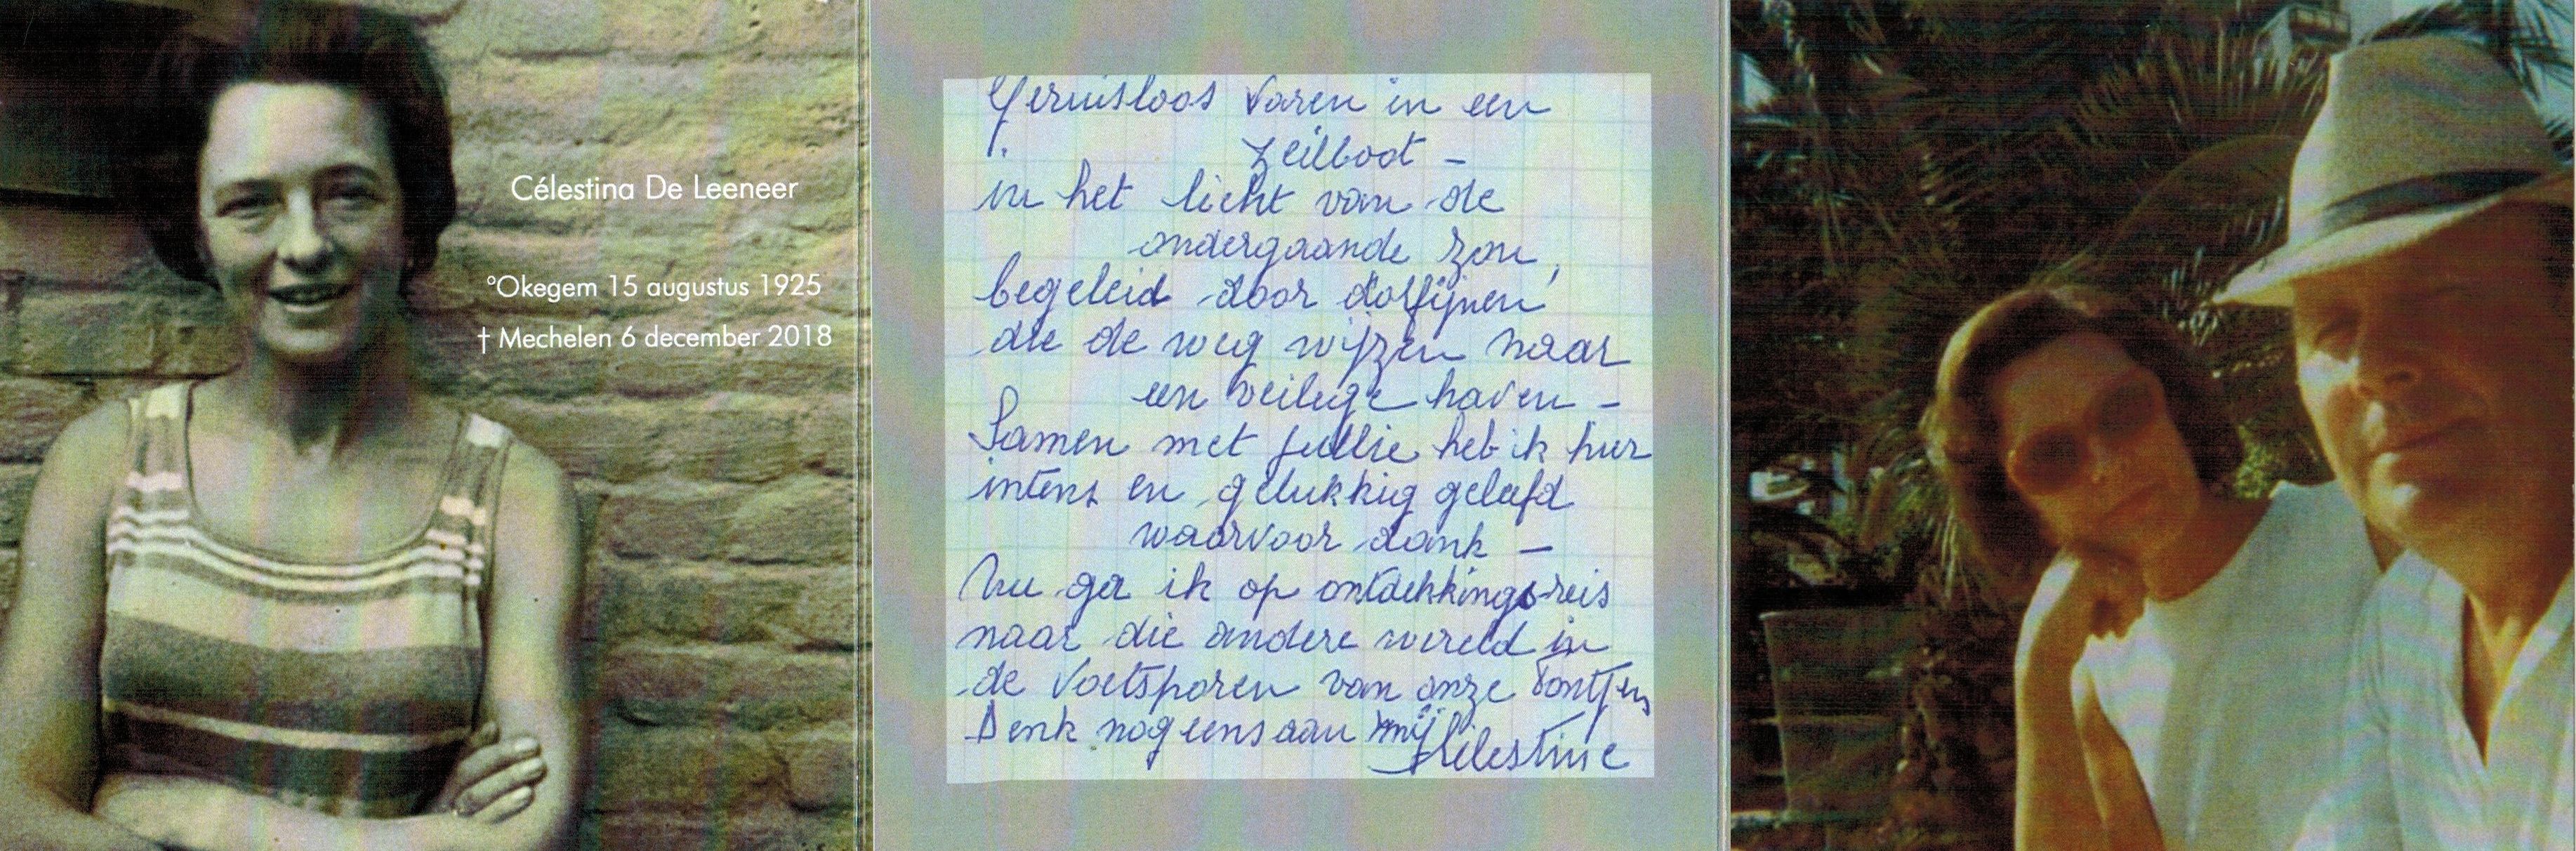 Célestina De Leeneer
°Okegem 15 augustus 1925
† Mechelen 6 december 2018
Geruisloos varen in een
zeilboot -
in het licht van de
ondergaande zon,
begeleid door dolfijnen
die de weg wijzen naar
een veilige haven -
Samen met jullie heb ik hier
intens en gelukkig geleefd
waarvoor dank -
Nu ga ik op ontdekkingsreis
naar die andere wereld in
de voetsporen van onze
Denk nog eens aan mij
Célestine